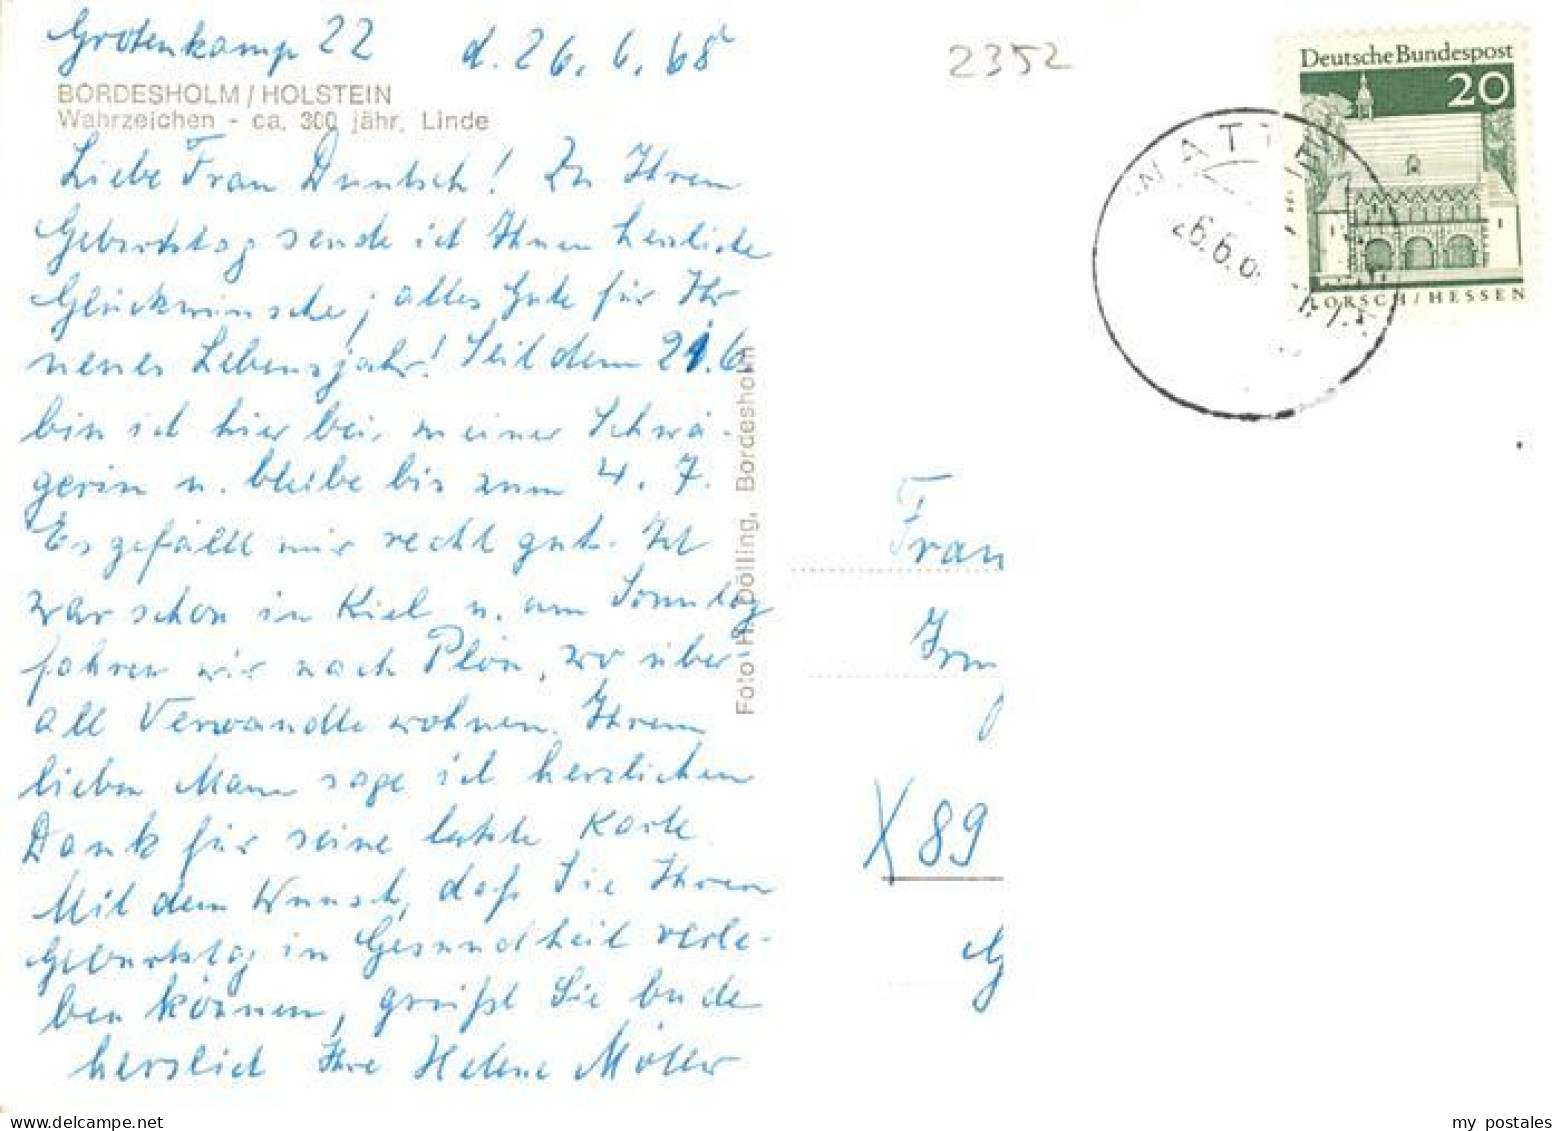 Grotenkamp 22 d. 26. 6. 68
BORDESHOLM / HOLSTEIN
Wahrzeichen - ca. 300 jähr. Linde
Liebe Frau Duntsch! Zu Ihrem
Geburtstag sende ich Ihnen herzliche
Glückwünsche, alles Gute für Ihr
neues Lebensjahr! Seit dem 21.6
bin ich hier bei meiner Schwä-
gerin u. bleibe bis zum 4. 7.
Es gefällt mir recht gut. Ich
war schon in Kiel u. am Sonntag
fahren wir nach Plön, wo über-
all Verwandte wohnen. Ihrem
lieben Mann sage ich herzlichen
Dank für seine letzte Karte.
Mit dem Wunsch, daß Sie Ihren
Geburtstag in Gesundheit verle-
ben können, grüßt Sie beide
herzlich Ihre Helene Möller
Foto H. Dölling, Bordesholm
2352
Deutsche Bundespost
20
LORSCH/HESSEN
WATT
26.6.6
Frau
Irmg
X 89
G
my postales